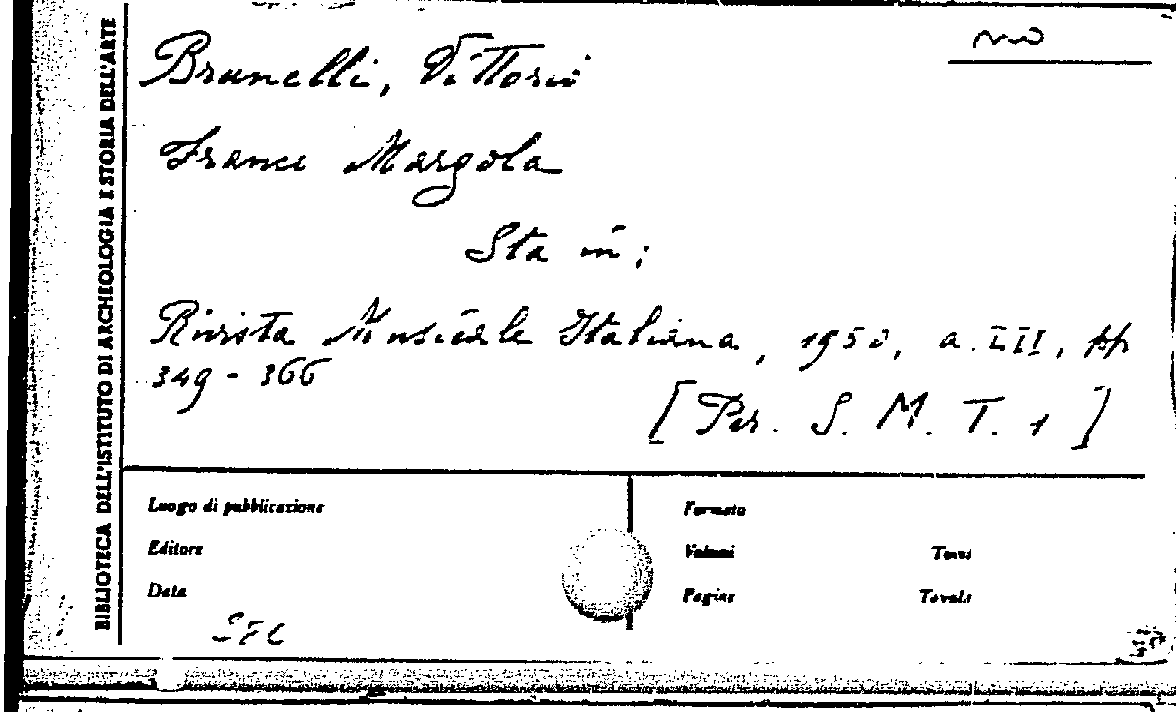 BIBLIOTECA DELL'ISTITUTO DI ARCHEOLOGIA E STORIA DELL'ARTE
no
Brunelli, Vittorio
Franco Margola
Sta in:
Rivista Musicale Italiana, 1950, a. LII, pp
349 - 366
[Per. S. M. T. 1]
Luogo di pubblicazione
Formato
Editore
Volumi Tomi
Data
Pagine Tavole